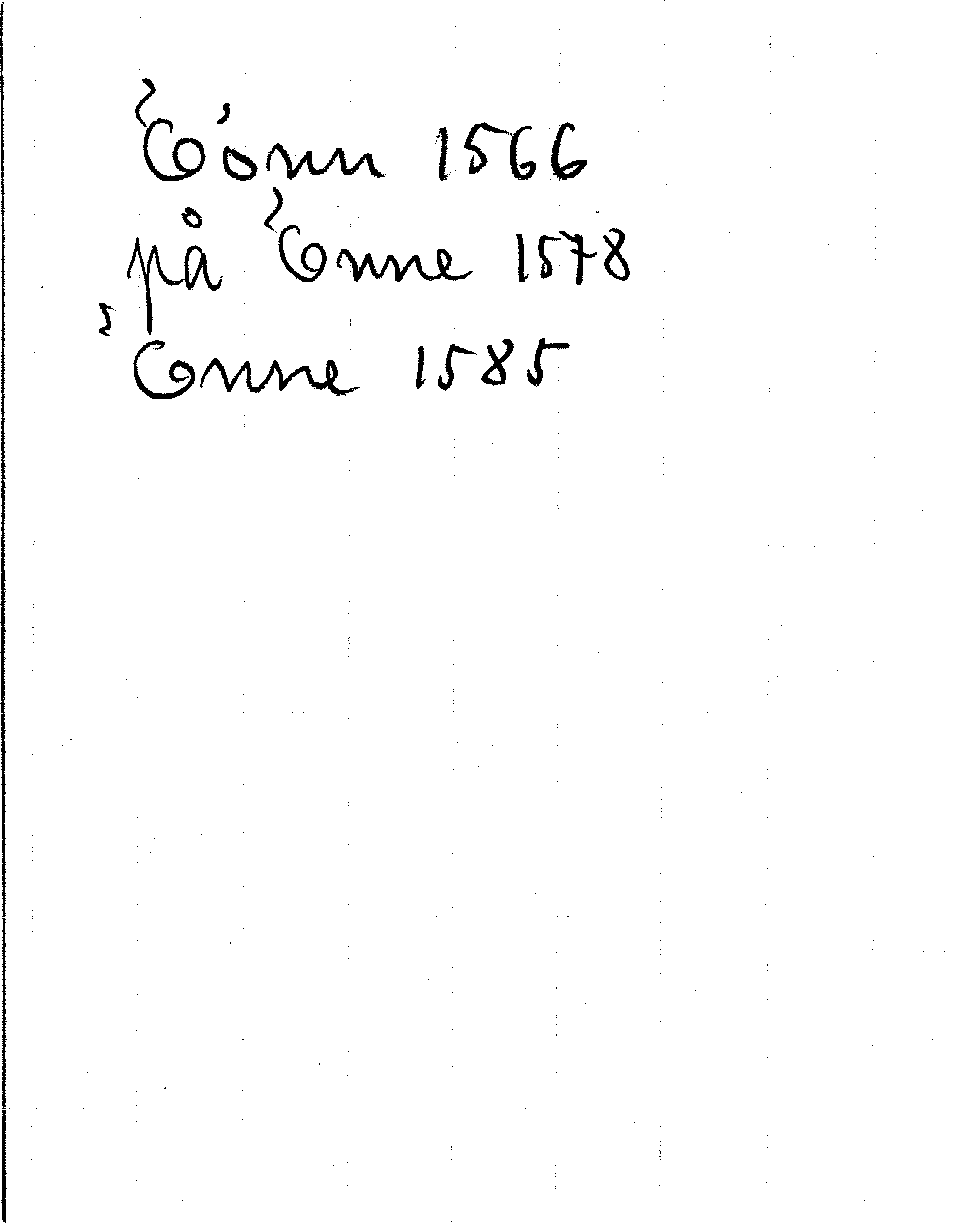 Öónn 1566
på Önne 1578
Önne 1585